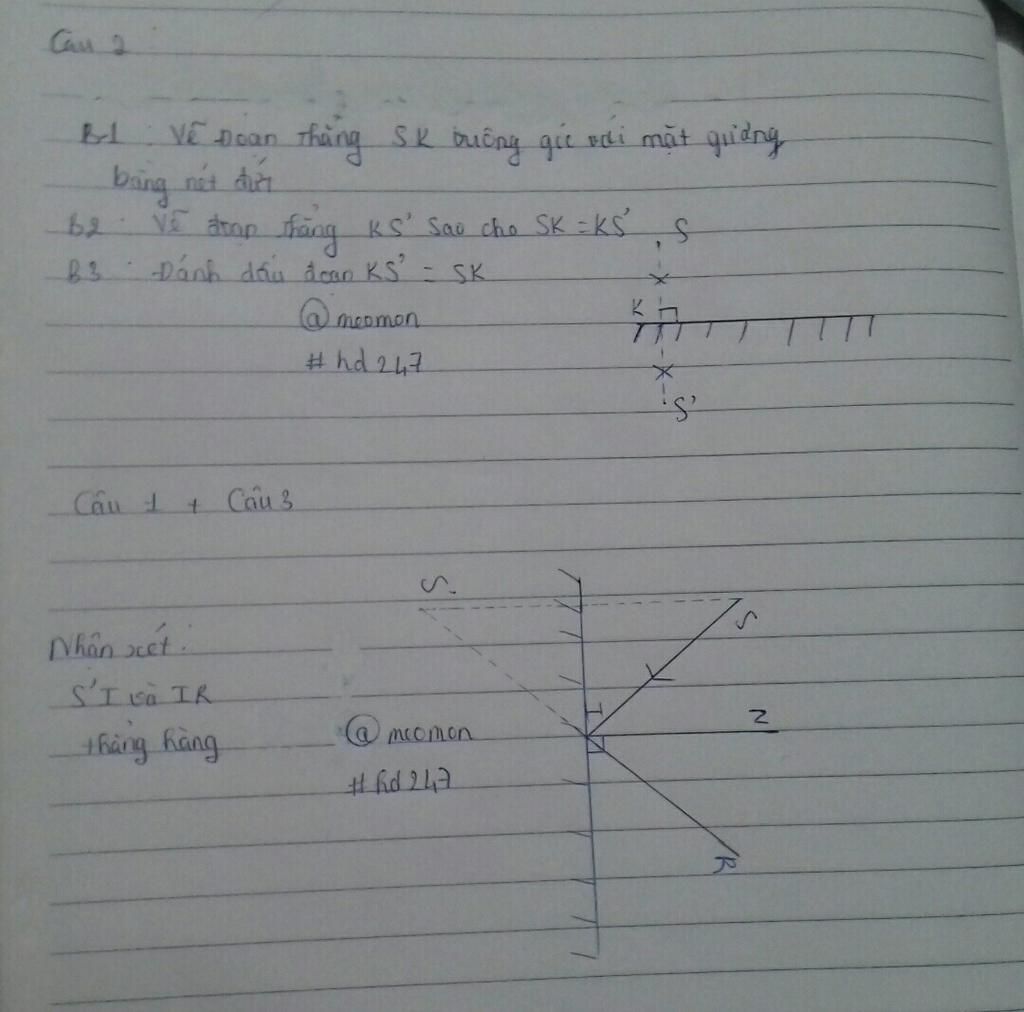 Câu 2
B1: Vẽ Đoạn thẳng SK vuông góc với mặt gương
bằng nét đứt
B2: Vẽ đoạn thẳng KS' sao cho SK = KS'
S
B3: Đánh dấu đoạn KS' = SK
K
@meomon
#hd247
S'
Câu 1 + Câu 3
S'
S
Nhận xét:
S'I và IR
thẳng hàng
I
N
@meomon
#hd247
R